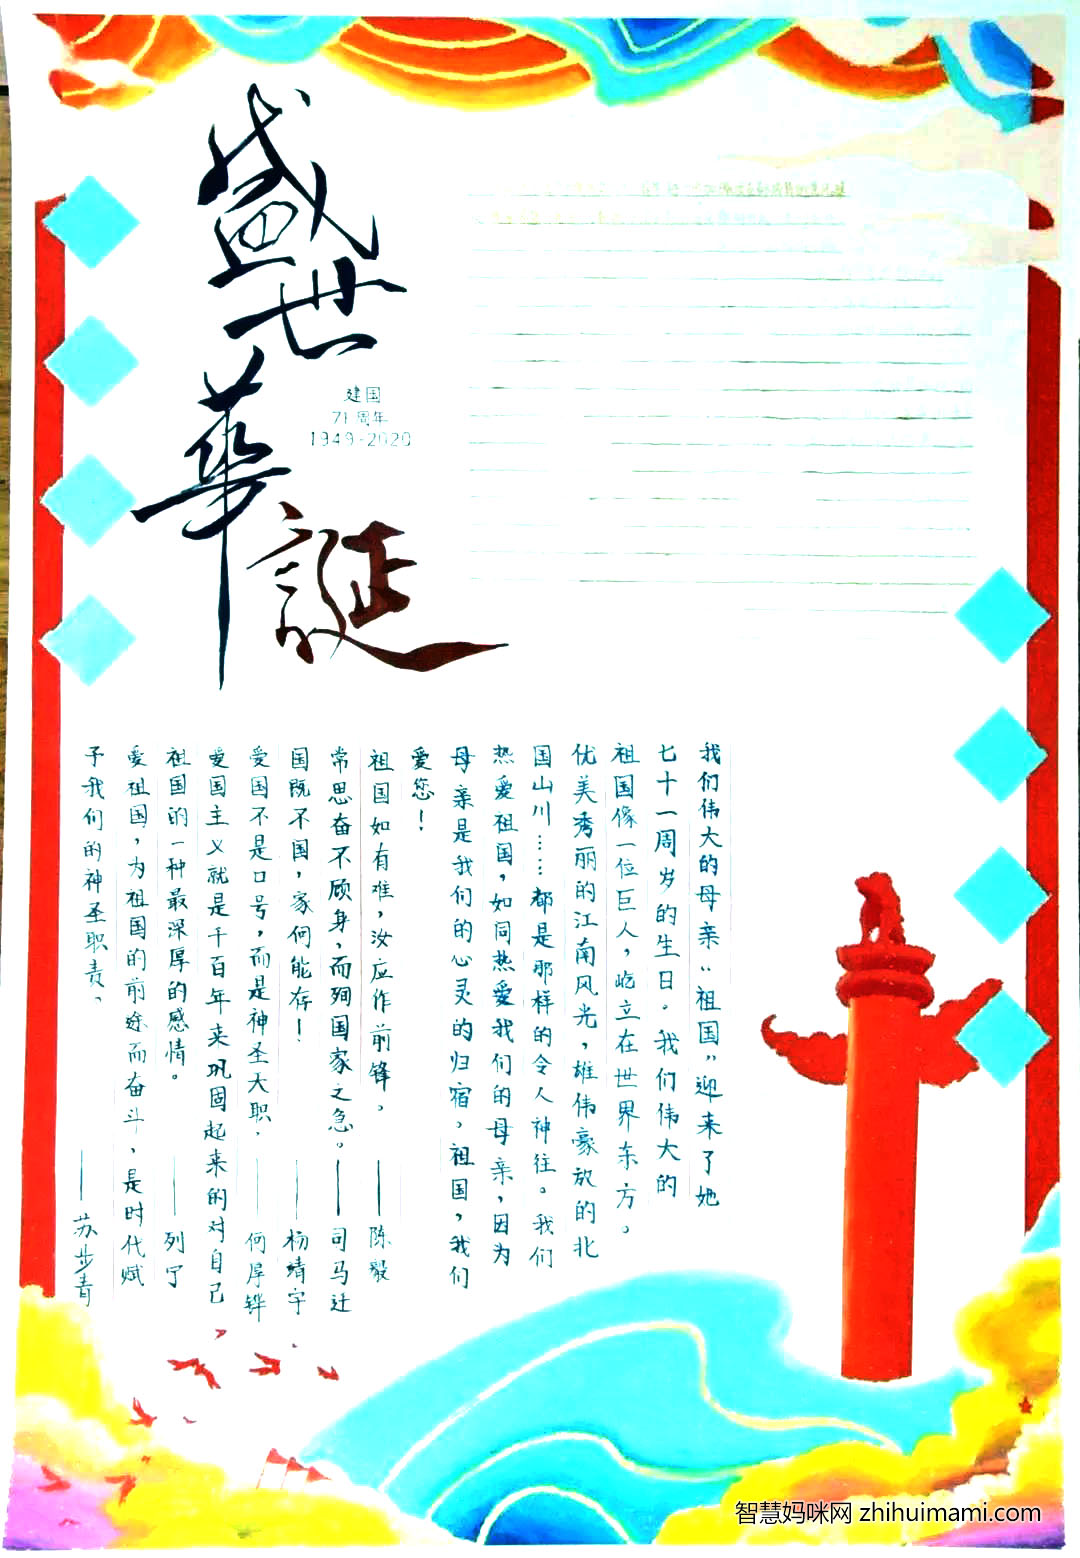 盛世華誕
建国
71周年
1949-2020
我们伟大的母亲“祖国”迎来了她
七十一周岁的生日。我们伟大的
祖国像一位巨人，屹立在世界东方。
优美秀丽的江南风光，雄伟豪放的北
国山川……都是那样的令人神往。我们
热爱祖国，如同热爱我们的母亲，因为
母亲是我们的心灵的归宿，祖国，我们
爱您！
祖国如有难，汝应作前锋。——陈毅
常思奋不顾身，而殉国家之急。——司马迁
国既不国，家何能存！——杨靖宇
爱国不是口号，而是神圣天职。——何厚铧
爱国主义就是千百年来巩固起来的对自己
祖国的一种最深厚的感情。——列宁
爱祖国，为祖国的前途而奋斗，是时代赋
予我们的神圣职责。——苏步青
智慧妈咪网 zhihuimami.com